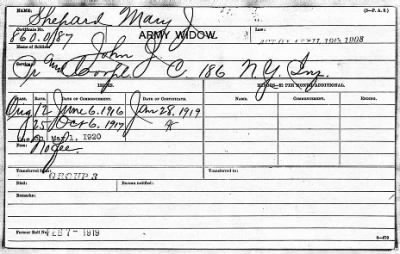 NAME: Shepard Mary J. (3-F. A. S.)
Certificate No. 860.0187 ARMY WIDOW. Law:
ACT OF APRIL 19TH 1908
Name of Soldier: John J.
Service: Pr and Corpl C. 186 N.Y. Inf.
ISSUES.
RATE. DATE OF COMMENCEMENT. DATE OF CERTIFICATE. RATE. DATE OF COMMENCEMENT. DATE OF CERTIFICATE.
Orig 12 June 6. 1916 Jan 28. 1919
25 Oct 6. 1917
May 1, 1920
Fees: No fee.
Transferred from: GROUP 3 Transferred to:
Died: Bureau notified:
Remarks:
Former Roll No. FEB 7 - 1919